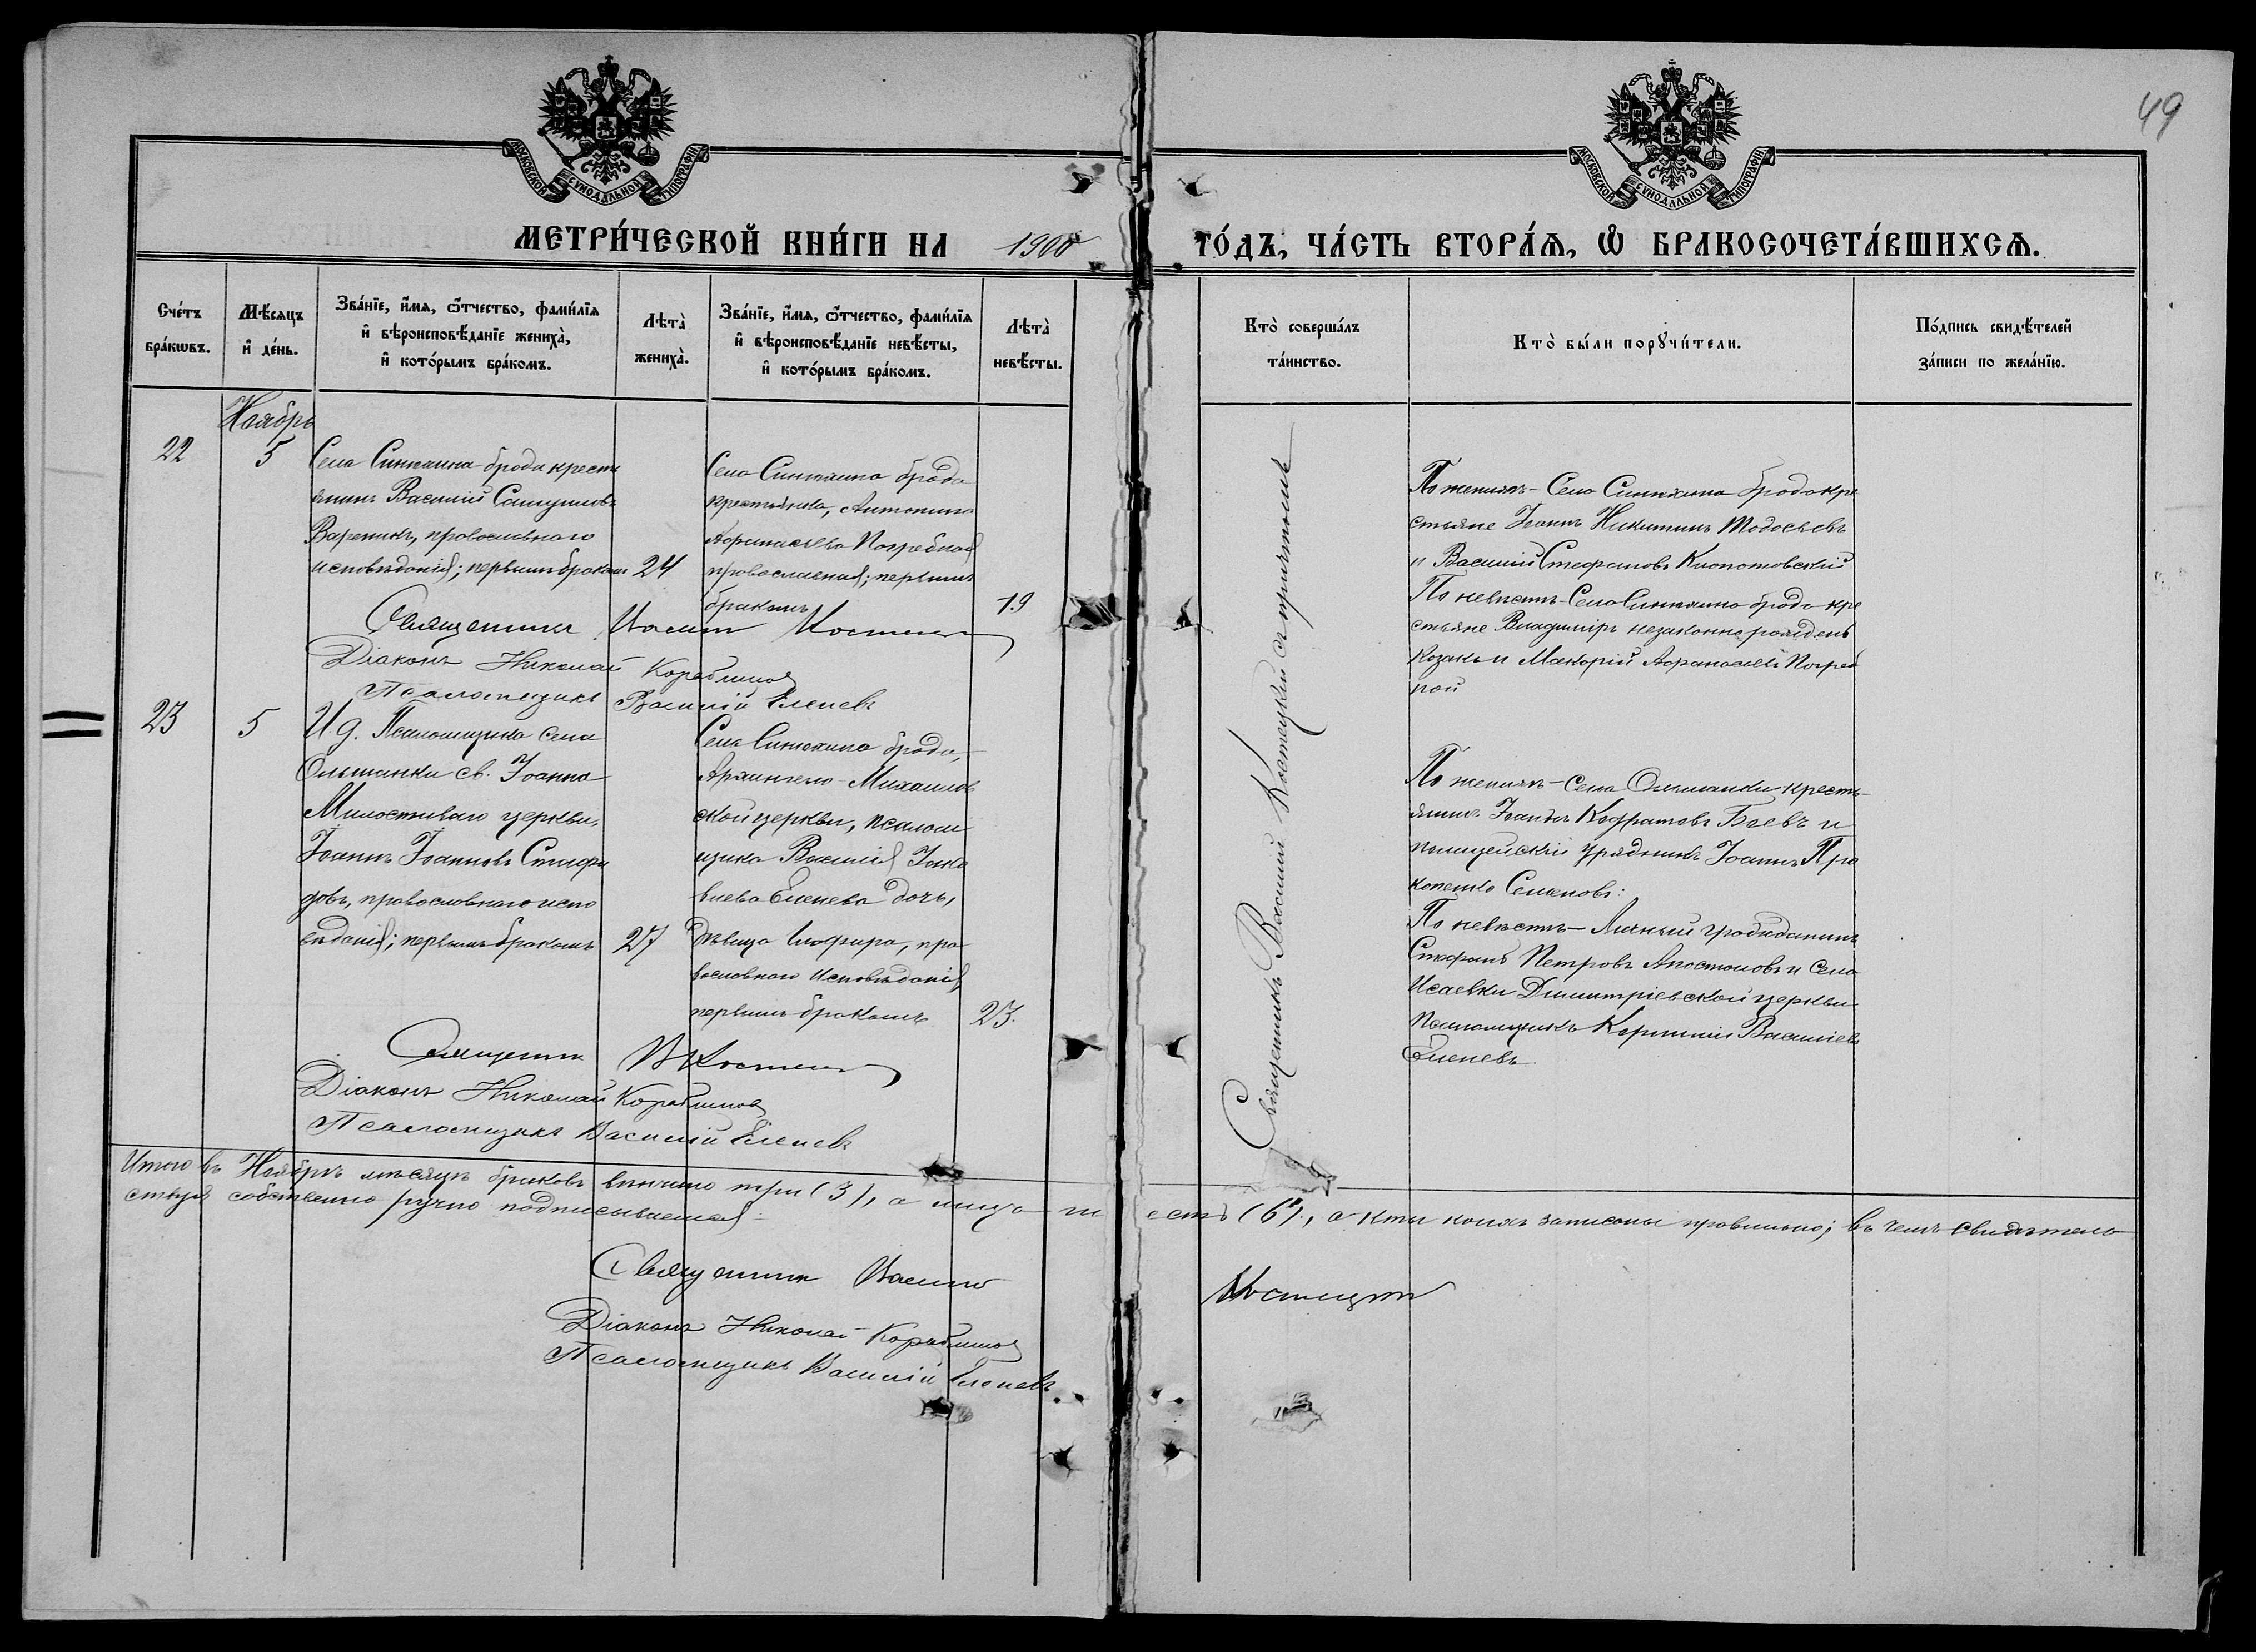 49
МОСКОВСКОЙ СѴНОДАЛЬНОЙ ТИПОГРАФІИ
МОСКОВСКОЙ СѴНОДАЛЬНОЙ ТИПОГРАФІИ
МЕТРИ́ЧЕСКОЙ КНИ́ГИ НА 1900 ГО́ДЪ, ЧА́СТЬ ВТОРА́Ѧ, Ѡ҆ БРАКОСОЧЕТА́ВШИХСѦ.
Сче́тъ
бра́кѡвъ.
Мѣ́сяцъ
и҆ де́нь.
Зва́нїе, и҆́мѧ, ѻ҆́тчество, фами́лїѧ
и҆ вѣроисповѣ́данїе жениха̀,
и҆ кото́рымъ бра́комъ.
Лѣта̀
жениха̀.
Зва́нїе, и҆́мѧ, ѻ҆́тчество, фами́лїѧ
и҆ вѣроисповѣ́данїе невѣ́сты,
и҆ кото́рымъ бра́комъ.
Лѣта̀
невѣ́сты.
Кто̀ соверша́лъ
та́инство.
Кто̀ бы́ли порꙋчи́тели.
По́дпись свидѣ́телей
за́писи по жела́нїю.
Ноябрь
22
5
Села Синюхина брода кресть
янинъ Василій Самуиловъ
Вареникъ, православнаго
исповѣданія; первымъ бракомъ
24
Села Синюхина брода
крестьянка, Антонина
Афанасьева Погребная
православная; первымъ
бракомъ
19
По женихѣ - Села Синюхина брода кре
стьяне Іоаннъ Никитинъ Тодосьевъ
и Василій Стефановъ Клопотовскій
По невѣстѣ - Села Синюхина брода кре
стьяне Владиміръ незаконнорожденъ
Козакъ и Макарій Афанасьевъ Погреб
ной
Священникъ Василій
Діаконъ Николай
Псаломщикъ Василій Еленевъ
23
5
И д. Псаломщика села
Ольшанки св. Іоанна
Милостиваго церкви,
Іоаннъ Іоанновъ
православнаго испо
вѣданія; первымъ бракомъ
27
Села Синюхина брода,
Архангело-Михаилов
ской церкви, псалом
щика Василія Іоко
влева Еленева дочь,
дѣвица Глафира, пра
вославнаго исповѣданія
первымъ бракомъ
23.
Священникъ Василій Костецкій съ причтомъ
По женихѣ - Села Ольшанки кресть-
янинъ Іоаннъ Кодратовъ Баевъ и
полицейскій Урядникъ Іоаннъ Про
копьевъ Семеновъ:
По невѣстѣ - Личный гражданинъ
Стефанъ Петровъ Апостоловъ и Села
Исаевки Димитріевской церкви
Псаломщикъ Корнилій Василіевъ
Еленевъ
Священникъ В
Діаконъ Николай
Псаломщикъ Василій Еленевъ
Итого въ Ноябрѣ мѣсяцѣ браковъ вѣнчано три (3), а лицъ шесть (6), акты коихъ записаны правильно; въ чемъ свидѣтель
ствуя собственно ручно подписываемся:
Священникъ Василій Костецкій
Діаконъ Николай
Псаломщикъ Василій Еленевъ